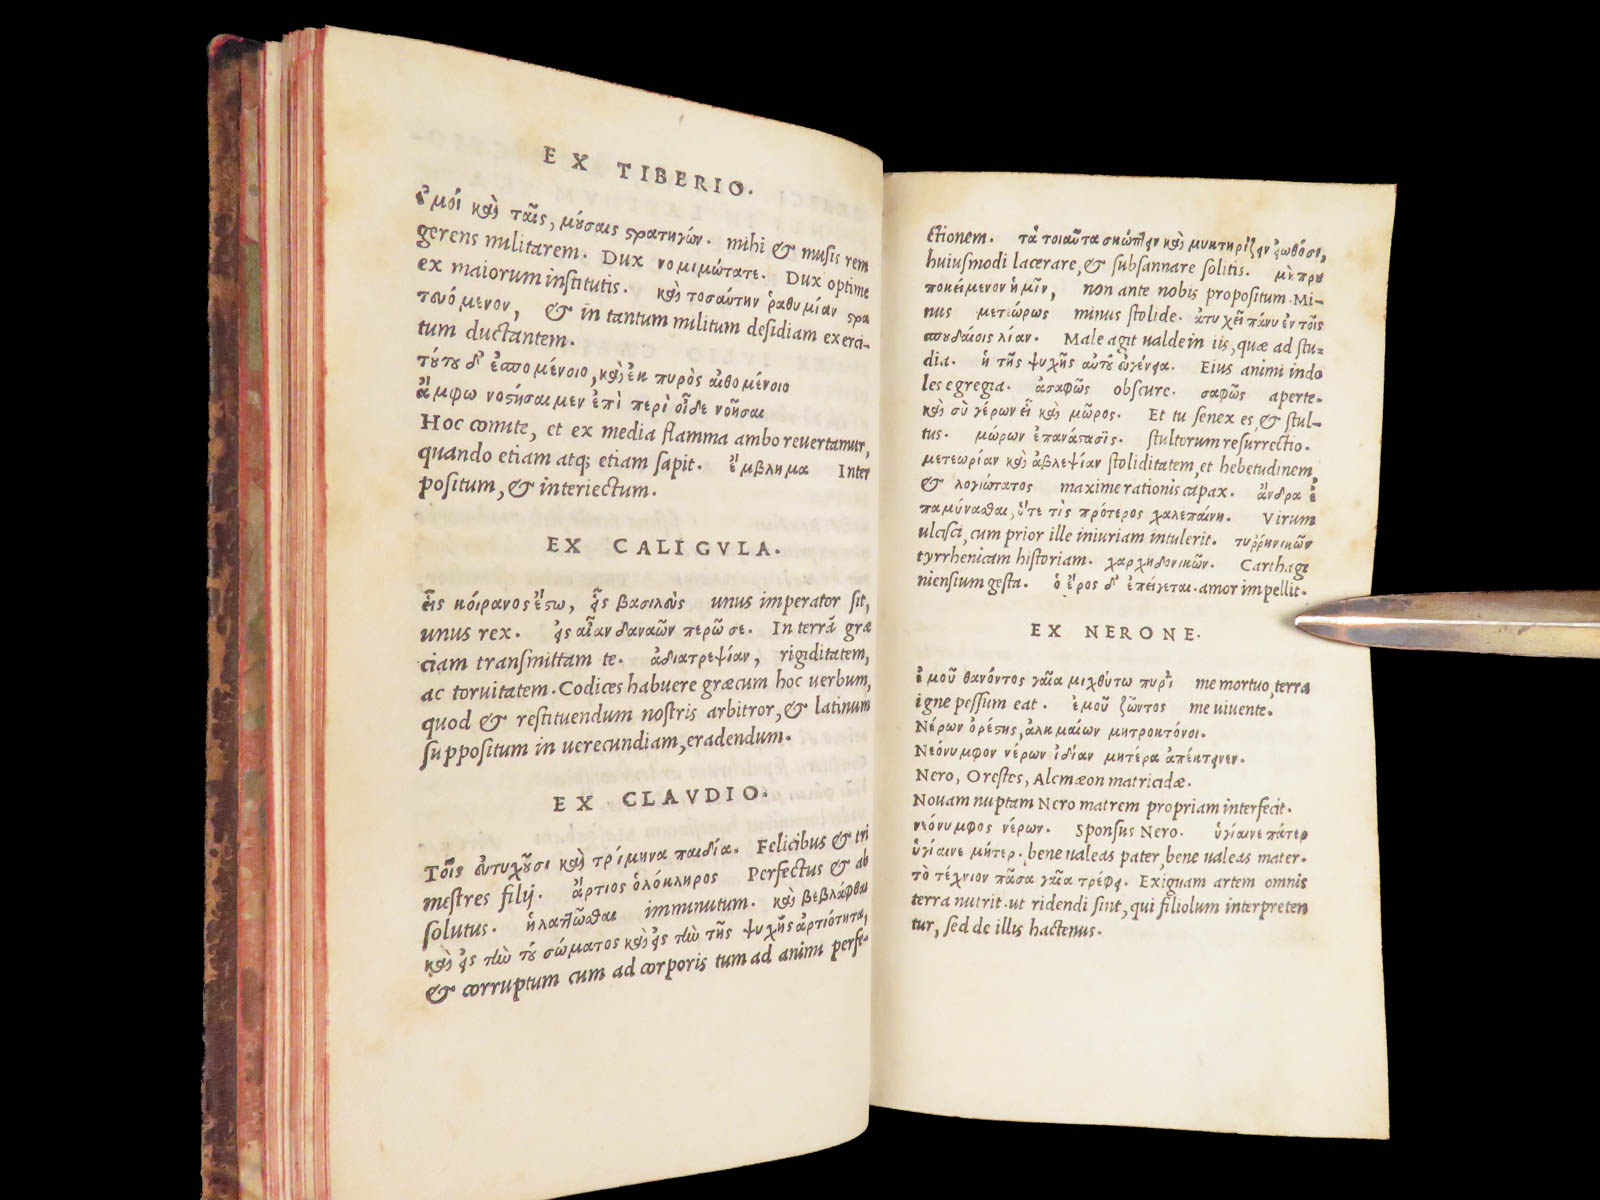 EX TIBERIO.
ἐμοί καὶ ταῖς, μούσαις στρατηγῶν. mihi & musis rem
gerens militarem. Dux νομιμώτατε. Dux optime
ex maiorum institutis. καὶ τοσαύτην ῥαθυμίαν στρα
τουόμενον, & in tantum militum desidiam exerci-
tum ductantem.
τούτου δ' ἑσπομένοιο, καὶ ἐκ πυρὸς αἰθομένοιο
ἄμφω νοστήσαιμεν ἐπὶ περὶ οἶδε νοῆσαι
Hoc comite, et ex media flamma ambo reuertamur,
quando etiam atq; etiam sapit. ἔμβλημα Inter
positum, & interiectum.
EX CALIGVLA.
εἷς κόιρανος ἔστω, εἷς βασιλεὺς unus imperator sit,
unus rex. εἰς αἶαν δαναῶν περῶ σε. In terrã græ
ciam transmittam te. ἀδιατρεψίαν, rigiditatem,
ac toruitatem. Codices habuere græcum hoc uerbum,
quod & restituendum nostris arbitror, & latinum
suppositum in uerecundiam, eradendum.
EX CLAVDIO.
Τοῖς εὐτυχοῦσι καὶ τρίμηνα παιδία. Felicibus & tri
mestres filij. ἄρτιος ὁλόκληρος Perfectus & ab
solutus. ἠλαττῶσθαι imminutum. καὶ βεβλάφθαι
καὶ εἰς τὴν τοῦ σώματος καὶ εἰς τὴν τῆς ψυχῆς ἀρτιότητα,
& corruptum cum ad corporis tum ad animi perfe-
ctionem. τὰ τοιαῦτα σκώπτειν καὶ μυκτηρίζειν εἰωθόσιν,
huiusmodi lacerare, & subsannare solitis. μὴ προ
ποκείμενον ἡμῖν, non ante nobis propositum. Mi-
nus μετεώρως minus stolide. ἀτυχεῖ πάνυ ἐν τοῖς
σπουδαίοις λίαν. Male agit ualde in iis, quæ ad stu-
dia. ἡ τῆς ψυχῆς αὐτοῦ εὐγένεια. Eius animi indo
les egregia. ἀσαφῶς obscure. σαφῶς aperte.
καὶ σὺ γέρων εἶ καὶ μῶρος. Et tu senex es, & stul-
tus. μώρων ἐπανάστασις. stultorum resurrectio.
μετεωρίαν καὶ ἀβλεψίαν stoliditatem, et hebetudinem,
& λογιώτατος maxime rationis capax. ἄνδρα ἐ
παμύνασθαι, ὅτε τὶς πρότερος χαλεπαίνη. Virum
ulcisci, cum prior ille iniuriam intulerit. τυῤῥηνικῶν
tyrrhenicam historiam. χαρχηδονικῶν. Carthagi
niensium gesta. ὁ ἔρος δ' ἐπείγεται. amor impellit.
EX NERONE.
ἐμοῦ θανόντος γαῖα μιχθύτω πυρί me mortuo, terra
igne pessum eat. ἐμοῦ ζῶντος me uiuente.
Νέρων ὀρέστης, ἀλκμαίων μητροκτόνοι.
Νεόνυμφον νέρων ἰδίαν μητέρα ἀπέκτεινεν.
Nero, Orestes, Alcmæon matricidæ.
Nouam nuptam Nero matrem propriam interfecit.
νεόνυμφος νέρων. Sponsus Nero. ὑγίαινε πάτερ
ὑγίαινε μήτερ. bene ualeas pater, bene ualeas mater.
τὸ τέχνιον πᾶσα γαῖα τρέφει. Exiguam artem omnis
terra nutrit. ut ridendi sint, qui filiolum interpreten
tur, sed de illis hactenus.